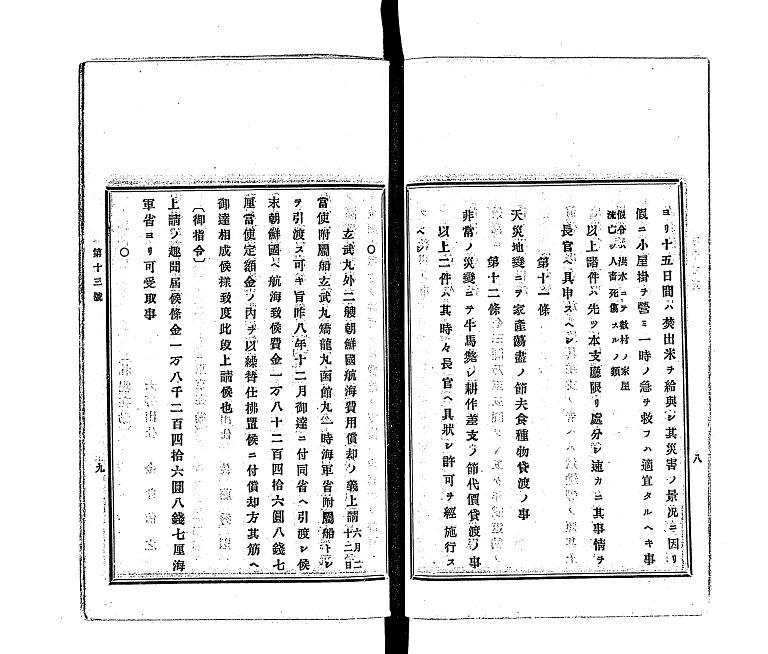 ヨリ十五日間ハ焚出米ヲ給與シ其災害ノ景況ニ因リ
假ニ小屋掛ヲ營ミ一時ノ急ヲ救フハ適宜タルヘキ事
假令ハ洪水ニテ數村ノ家屋
流亡シ人畜死傷スルノ類
以上諸件ハ先ツ本支廳限リ處分シ速カニ其事情ヲ
長官ヘ具申スヘシ
第十一條
天災地變ニテ家產蕩盡ノ節夫食種物貸渡ノ事
第十二條
非常ノ災ニテ牛馬斃シ耕作差支ノ節代價貸渡ノ事
以上二件ハ其時々長官ヘ具狀シ許可ヲ經施行ス
ヘシ
八
〇
玄武丸外二艘朝鮮國航海費用償却ノ義上請 六月二十二日
當使附屬船玄武丸矯龍丸函館丸一時海軍省附屬船トシ
テ引渡ス可キ旨昨八年十二月御達ニ付同省ヘ引渡シ候
末朝鮮國ヘ航海致候費金一万八千二百四拾六圓八錢七
厘當使定額金ノ內ヲ以繰替仕拂置候ニ付償却方其筋ヘ
御達相成候樣致度此段上請候也
〔御指令〕
上請ノ趣聞屆候條金一万八千二百四拾六圓八錢七厘海
軍省ヨリ可受取事
〇
第十三號
九